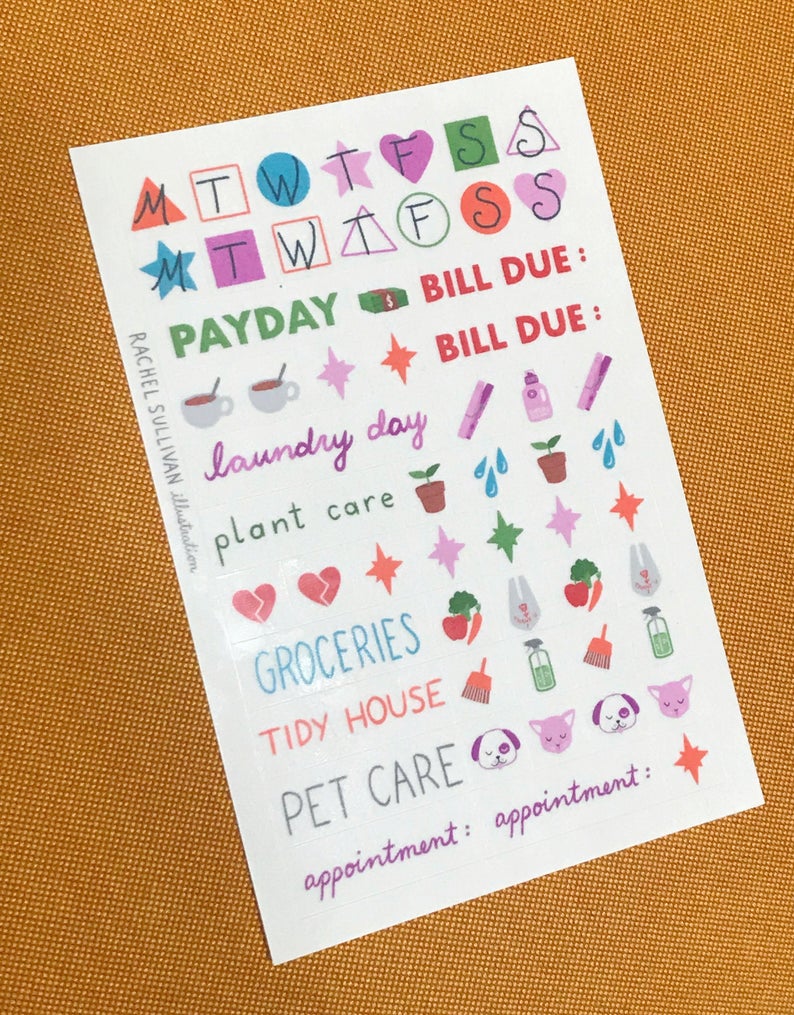 M T W T F S S
M T W T F S S
PAYDAY BILL DUE:
BILL DUE:
laundry day
plant care
GROCERIES
TIDY HOUSE
PET CARE
appointment: appointment:
RACHEL SULLIVAN illustration